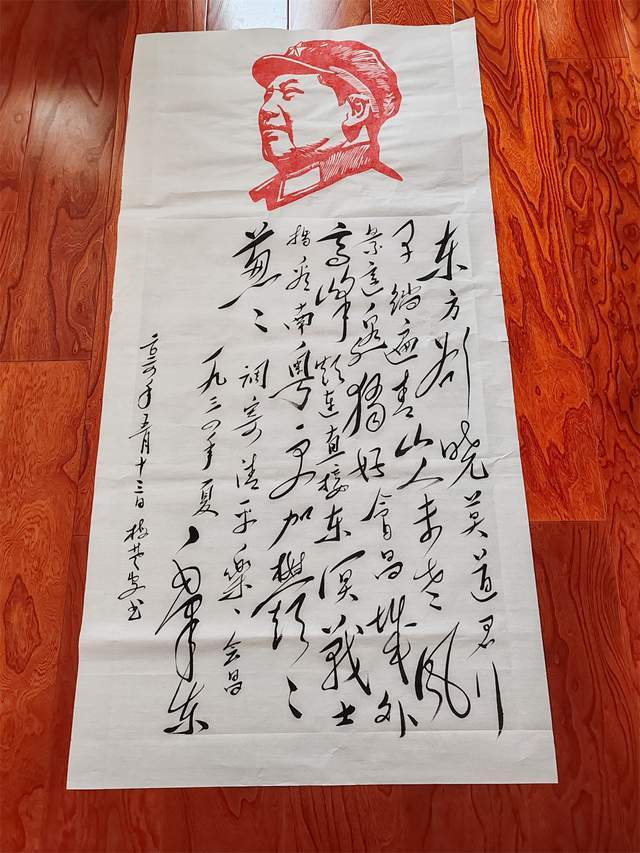 东方欲晓莫道君行
早踏遍青山人未老风
景这边独好會昌城外
高峰颠连直接东溟战士
指看南粤更加鬱〻
葱〻 调寄清平樂、会昌
一九三四年夏 毛泽东
年五月十三日 书